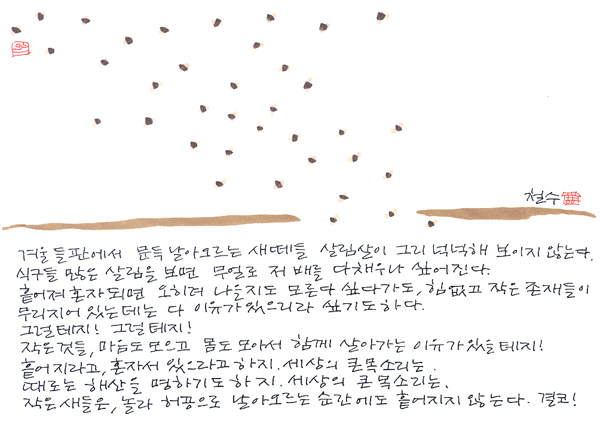 철수
겨울 들판에서 문득 날아오르는 새떼들 살림살이 그리 넉넉해 보이지 않는다.
식구들 많은 살림을 보면 무얼로 저 배를 다 채우나 싶어진다.
흩어져 혼자 되면 오히려 나을지도 모른다 싶다가도, 힘없고 작은 존재들이
무리지어 있는데는 다 이유가 있으리라 싶기도 하다.
그럴테지! 그럴테지!
작은것들, 마음도 모으고 몸도 모아서 함께 살아가는 이유가 있을테지!
흩어지라고, 혼자서 있으라고 하지. 세상의 큰 목소리는.
때로는 해산을 명하기도 하지. 세상의 큰 목소리는.
작은 새들은, 놀라 허공으로 날아오르는 순간에도 흩어지지 않는다. 결코!